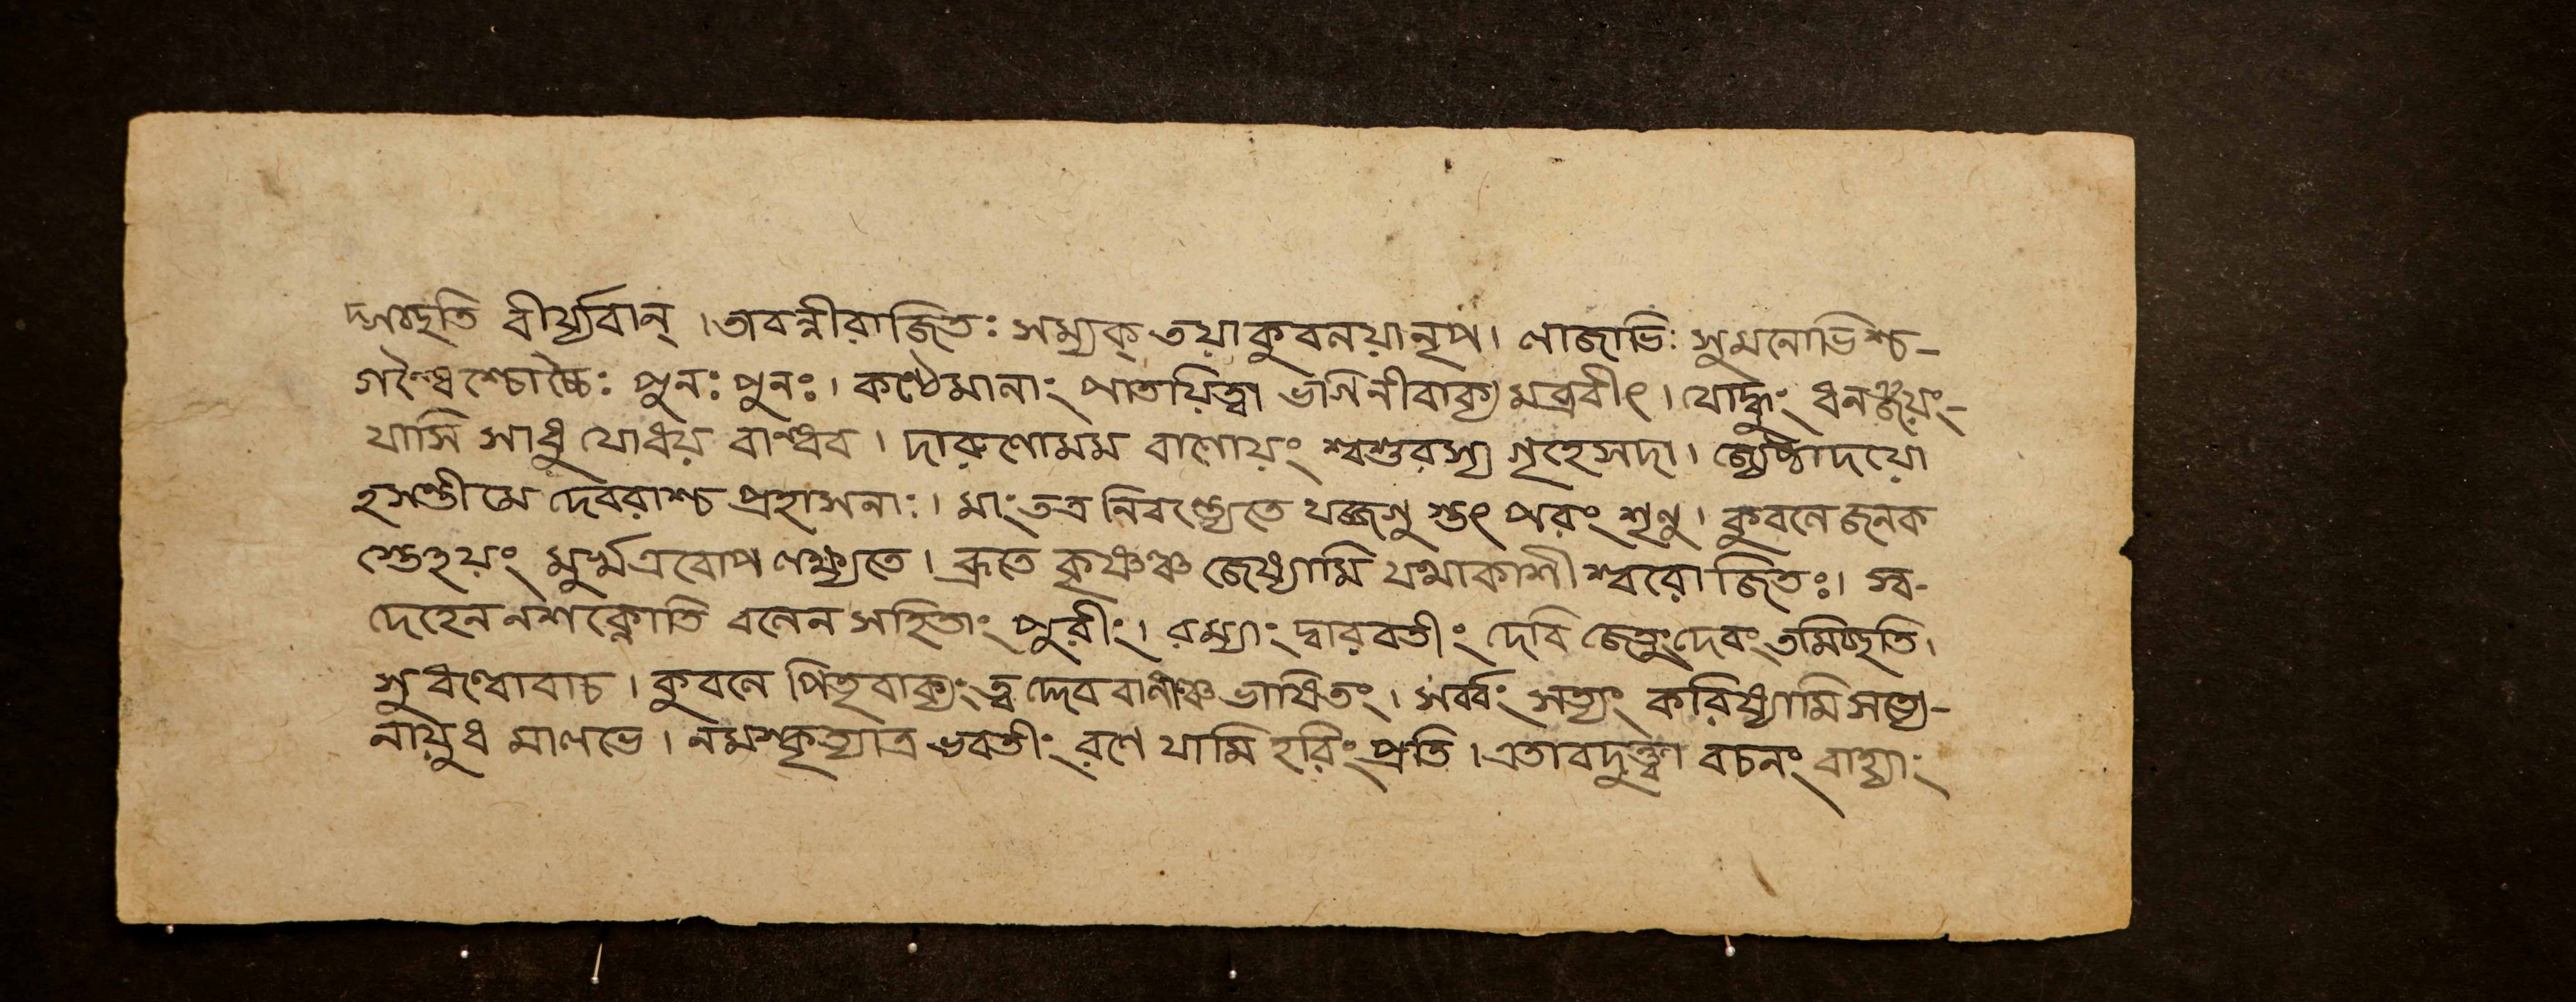 দ্গচ্ছতি বীর্য্যবান্ । তাবন্নীরাজিতঃ সম্যক্ তয়া কুবলয়া নৃপ। লাজাভিঃ সুমনোভিশ্চ-
গন্ধৈশ্চোচ্চৈঃ পুনঃ পুনঃ। কণ্ঠেমালাং পাতয়িত্বা ভগিনীবাক্যমব্রবীৎ। যোদ্ধুং ধনঞ্জয়ং-
যাসি সাধু যোধয় বান্ধব। দারুণোমম বাসোয়ং শ্বশুরস্য গৃহেসদা। জ্যেষ্ঠাদয়ো
হসন্তীমে দেবরাশ্চ প্রহাসনাঃ। মাং তত্র নিবর্ত্ত্যেতে যজ্জগু স্তৎ পরং শৃণু। কুবলে জনক
স্তেহয়ং মুর্খএবোপ লক্ষ্যতে। ব্রূতে কৃষ্ণঞ্চ জেষ্যামি যথাকাশীশ্বরো জিতঃ। স্ব-
দেহেন নশক্নোতি বলেন সহিতাং পুরীং। রম্যাং দ্বারবতীং দেবি জেতুংদেবং তমিচ্ছতি।
সুধন্বোবাচ। কুবলে পিতৃবাক্যং ত্ব দ্দেবরাণাঞ্চ ভাষিতং। সর্ব্বং সত্যং করিষ্যামি সত্যে-
নায়ুধ মালভে। নমস্কৃত্যাত্র ভবতীং রণে যামি হরিংপ্রতি। এতাবদুক্ত্বা বচনং বাহ্যাং